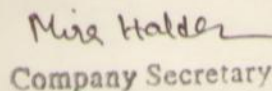 Mira Halder
Company Secretary